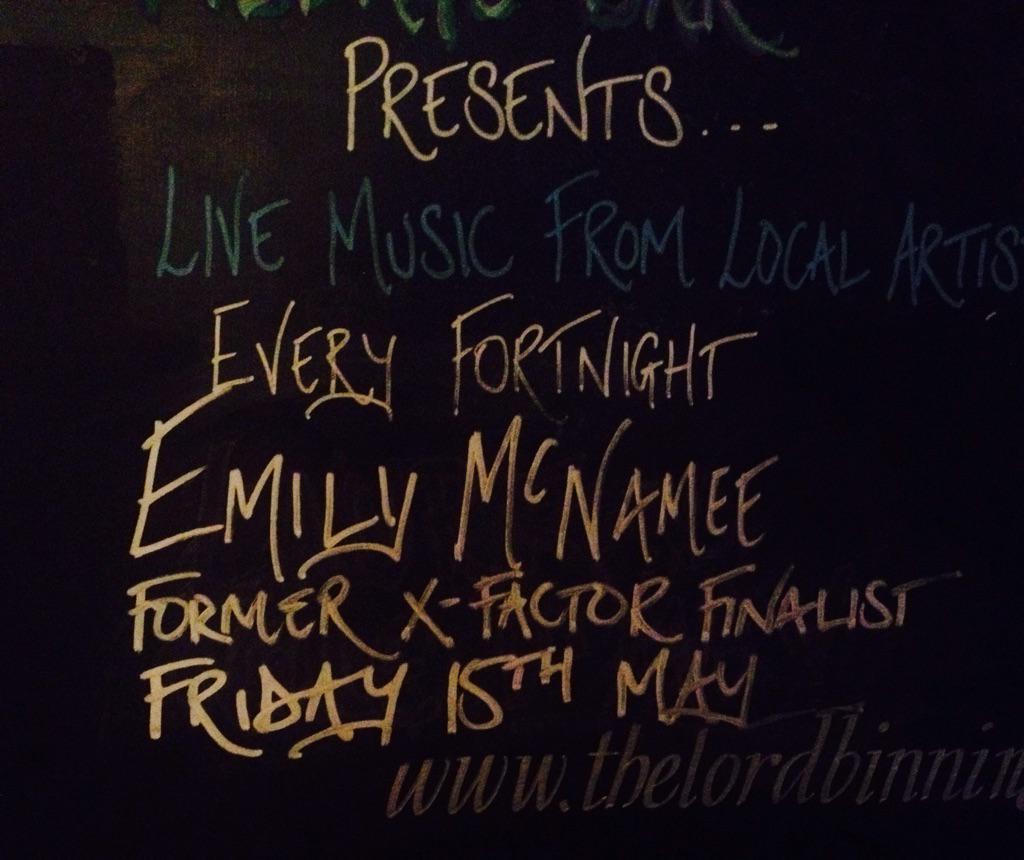 BAR
PRESENTS...
LIVE MUSIC FROM LOCAL ARTIS
EVERY FORTNIGHT
EMILY MCNAMEE
FORMER X-FACTOR FINALIST
FRIDAY 15TH MAY
www.thelordbinnin